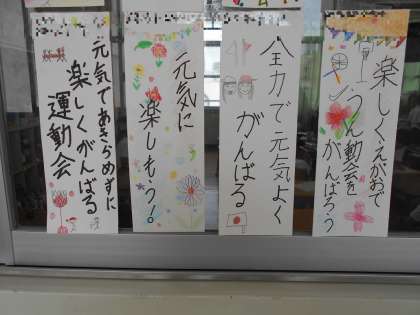 楽しくえがおで
うん動会を
がんばろう
全力で元気よく
がんばる
元気に
楽しもう！
元気であきらめずに
楽しくがんばる
運動会